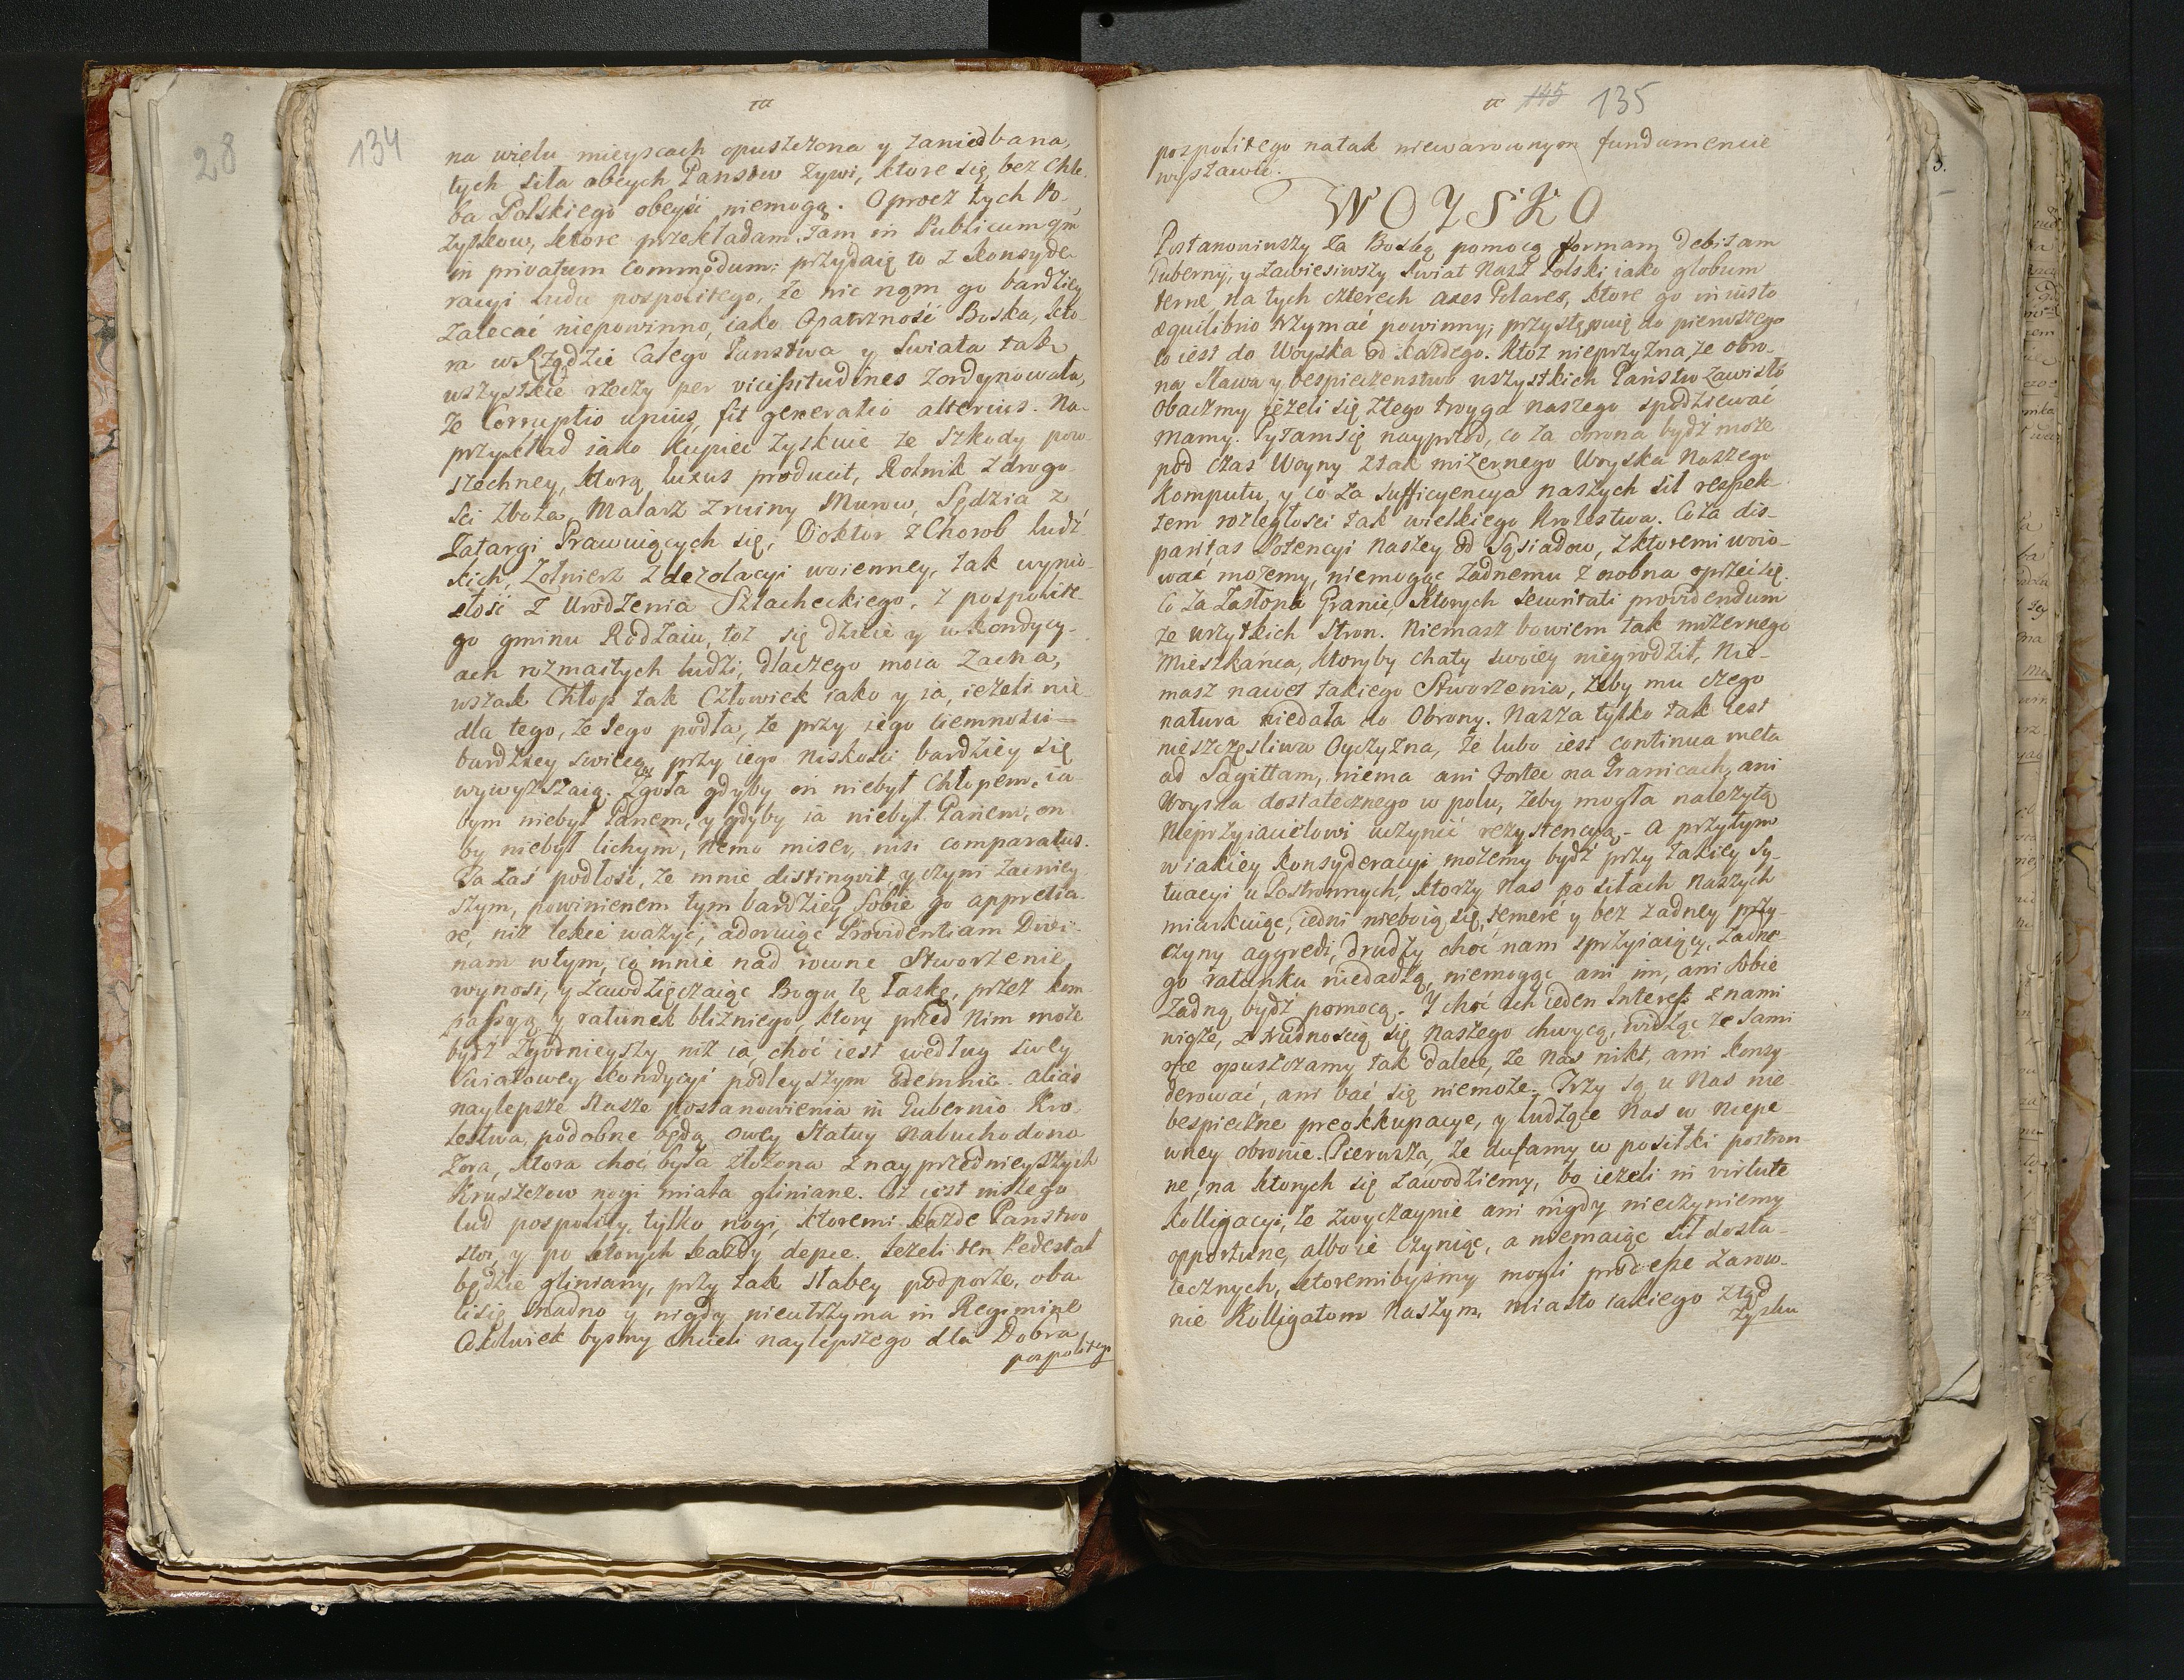 28
134
na wielu mieyscach opuszczona y zaniedbana,
tych siła obcych Panstw żywi, ktore się bez Chle-
ba Polskiego obeyść niemogą. Oprocz tych Po-
żytkow, ktore przekładam, tam in Publicum qm
in privatum Commodum; przydaię to z konsyde-
racyi Ludu pospolitego, że nic nam go bardziey
zalecać niepowinno, iako Opatrzność Boska, kto-
ra w Rządzie Całego Panstwa y Swiata tak
wszystkie rzeczy per vicissitudines zordynowała,
że Corruptio unius, fit generatio alterius. Na-
przykład iako Kupiec zyskuie ze Szkody pow-
szechney, ktorą luxus producit, Rolnik z drogo-
ści zboża, Malarz z ruiny Murow, Sędzia z
Zatargi Prawuiących się, Doktor z Chorob ludz-
kich, Zołnierz z dezolacyi woienney, tak wynio-
słość z Urodzenia Szlacheckiego, z pospolite-
go gminu Rodzaiu, toż się dzieie y w kondycy-
ach rozmaitych ludzi, dlaczego moia zacna,
wszak Chłop tak Człowiek iako y ia, ieżeli nie
dla tego, że Iego podła, że przy iego ciemności
bardziey swiecą, przy iego niskości bardziey się
wywyższaią. Zgoła gdyby on niebył Chłopem, ia
bym niebył Panem, y gdyby ia niebył Panem, on
by niebył lichym, nemo miser, nisi comparatus.
Ta zaś podłość, że mnie distingvit y czyni zacniey-
szym, powinienem tym bardziey sobie go appretia-
re, niż lekce ważyć, adoruiąc Providentiam Divi-
nam w tym, co mnie nad rowne Stworzenie
wynosi, y zawdzięczaiąc Bogu tę łaskę, przez kom-
passyą y ratunek bliżniego, ktory przed Nim może
bydź Zgodnieyszy niż ia, choć iest według swey
Swiatowey kondycyi podleyszym odemnie. alias
naylepsze Nasze postanowienia in Gubernio Kro-
lestwa, podobne będą owey Statuy Nabuchodono-
zora, ktora choć była złożona z nayprzednieyszych
Kruszczow nogi miała gliniane. Coż iest inszego
lud pospolity, tylko nogi, ktoremi każde Panstwo
stoi, y po ktorych każdy depce. Ieżeli ten Pedestał
będzie gliniany, przy tak słabey podporze, oba-
li się snadno y nigdy nieutrzyma in Regimine
Cokolwiek bysmy chcieli naylepszego dla Dobra
pospolitego
145 135
pospolitego na tak niewarownym fundamencie
wystawić.
WOYSKO
Postanowiwszy za Boską pomocą formam debitam
Gubernij, y zawiesiwszy Swiat Nasz Polski iako globum
terræ na tych czterech axes Polares, ktore go in iusto
æquilibrio trzymać powinny, przystępuię do pierwszego
to iest do Woyska od każdego. Ktoż nieprzyzna, że obro-
na sława y bespieczenstwo wszystkich Państw zawisło
Obaczmy ieżeli się z tego troyga naszego spodziewać
mamy. Pytam się nayprzod, co za obrona bydź może
pod czas Woyny z tak mizernego Woyska Naszego
Komputu, y co za sufficyencya naszych sił respek-
tem rozległości tak wielkiego Krolestwa. Co za dis-
paritas Potencyi Naszey od Sąsiadow, z ktoremi woio-
wać możemy, niemogąc żadnemu z nobna oprzeć się.
Co za zasłona Granic, ktorych securitati providendum
ze wszytkich Stron. Niemasz bowiem tak mizernego
Mieszkańca, ktoryby chaty swoiey niegrodził, Nie-
masz nawet takiego Stworzenia, żeby mu czego
natura niedała do Obrony. Nasza tylko tak iest
nieszczęsliwa Oyczyzna, że lubo iest continua meta
ad Sagittam, niema ani Fortec na Granicach, ani
Woyska dostatecznego w polu, żeby mogła należytą
Nieprzyiacielowi uczynić rezystencyą. A przytym
w iakiey konsyderacyi możemy bydź przy takiey Sy-
tuacyi u Postronnych, ktorzy Nas po siłach Naszych
miarkuiąc, iedni nieboią się temerè y bez żadney przy-
czyny aggredi, drudzy choć nam sprzyiaiący, żadne-
go ratunku niedadzą, niemogąc ani im, ani Sobie
żadną bydź pomocą. Y choć ich ieden Interess z nami
wiąże, z trudnością się Naszego chwycą, widząc że sami
się opuszczamy tak dalece, że Nas nikt, ani konsy-
derować, ani bać się niemoże. Trzy są u Nas nie-
bespieczne preokkupacye, y ludzące Nas w niepe-
wney obronie. Pierwsza, że dufamy w posiłki postron-
ne, na ktorych się zawodziemy, bo ieżeli in virtute
Kolligacyi, te zwyczaynie ani nigdy nieczyniemy
opportune, albo ie czyniąc, a niemaiąc sił dosta-
tecznych, ktoremibysmy mogli prodesse zarow-
nie Kolligatom Naszym, miasto iakiego ztąd
zysku